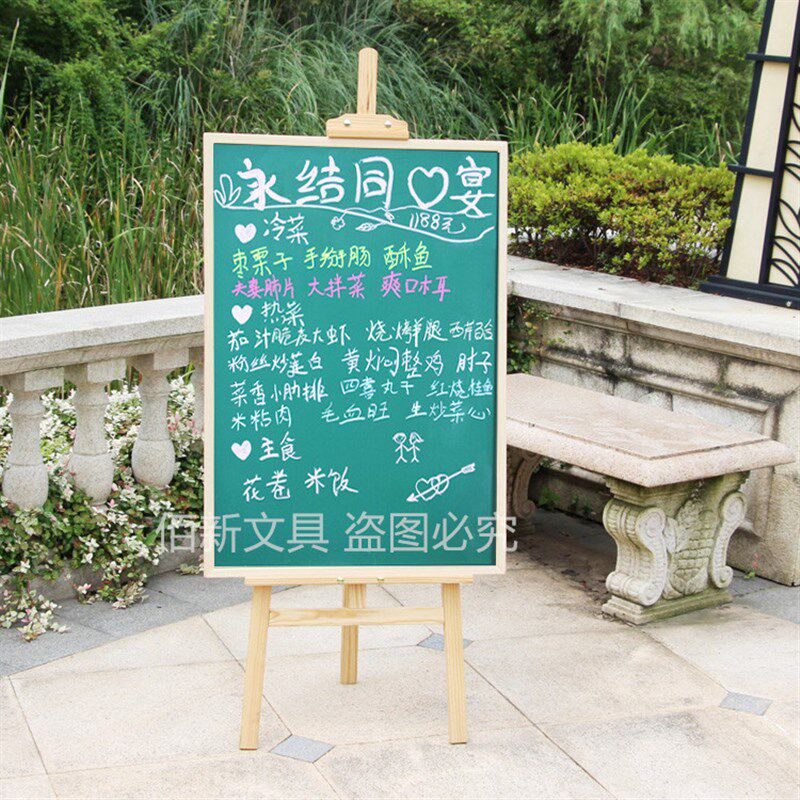 永结同♡宴
1188元
冷菜
枣栗子 手掰肠 酥鱼
夫妻肺片 大拌菜 爽口木耳
热菜
茄汁脆皮大虾 烧鲜腿
粉丝炒蛋白 黄焖整鸡 肘子
菜香小肋排 四喜丸子 红烧鱼
米粘肉 毛血旺 生炒菜心
主食
花卷 米饭
佰新文具 盗图必究